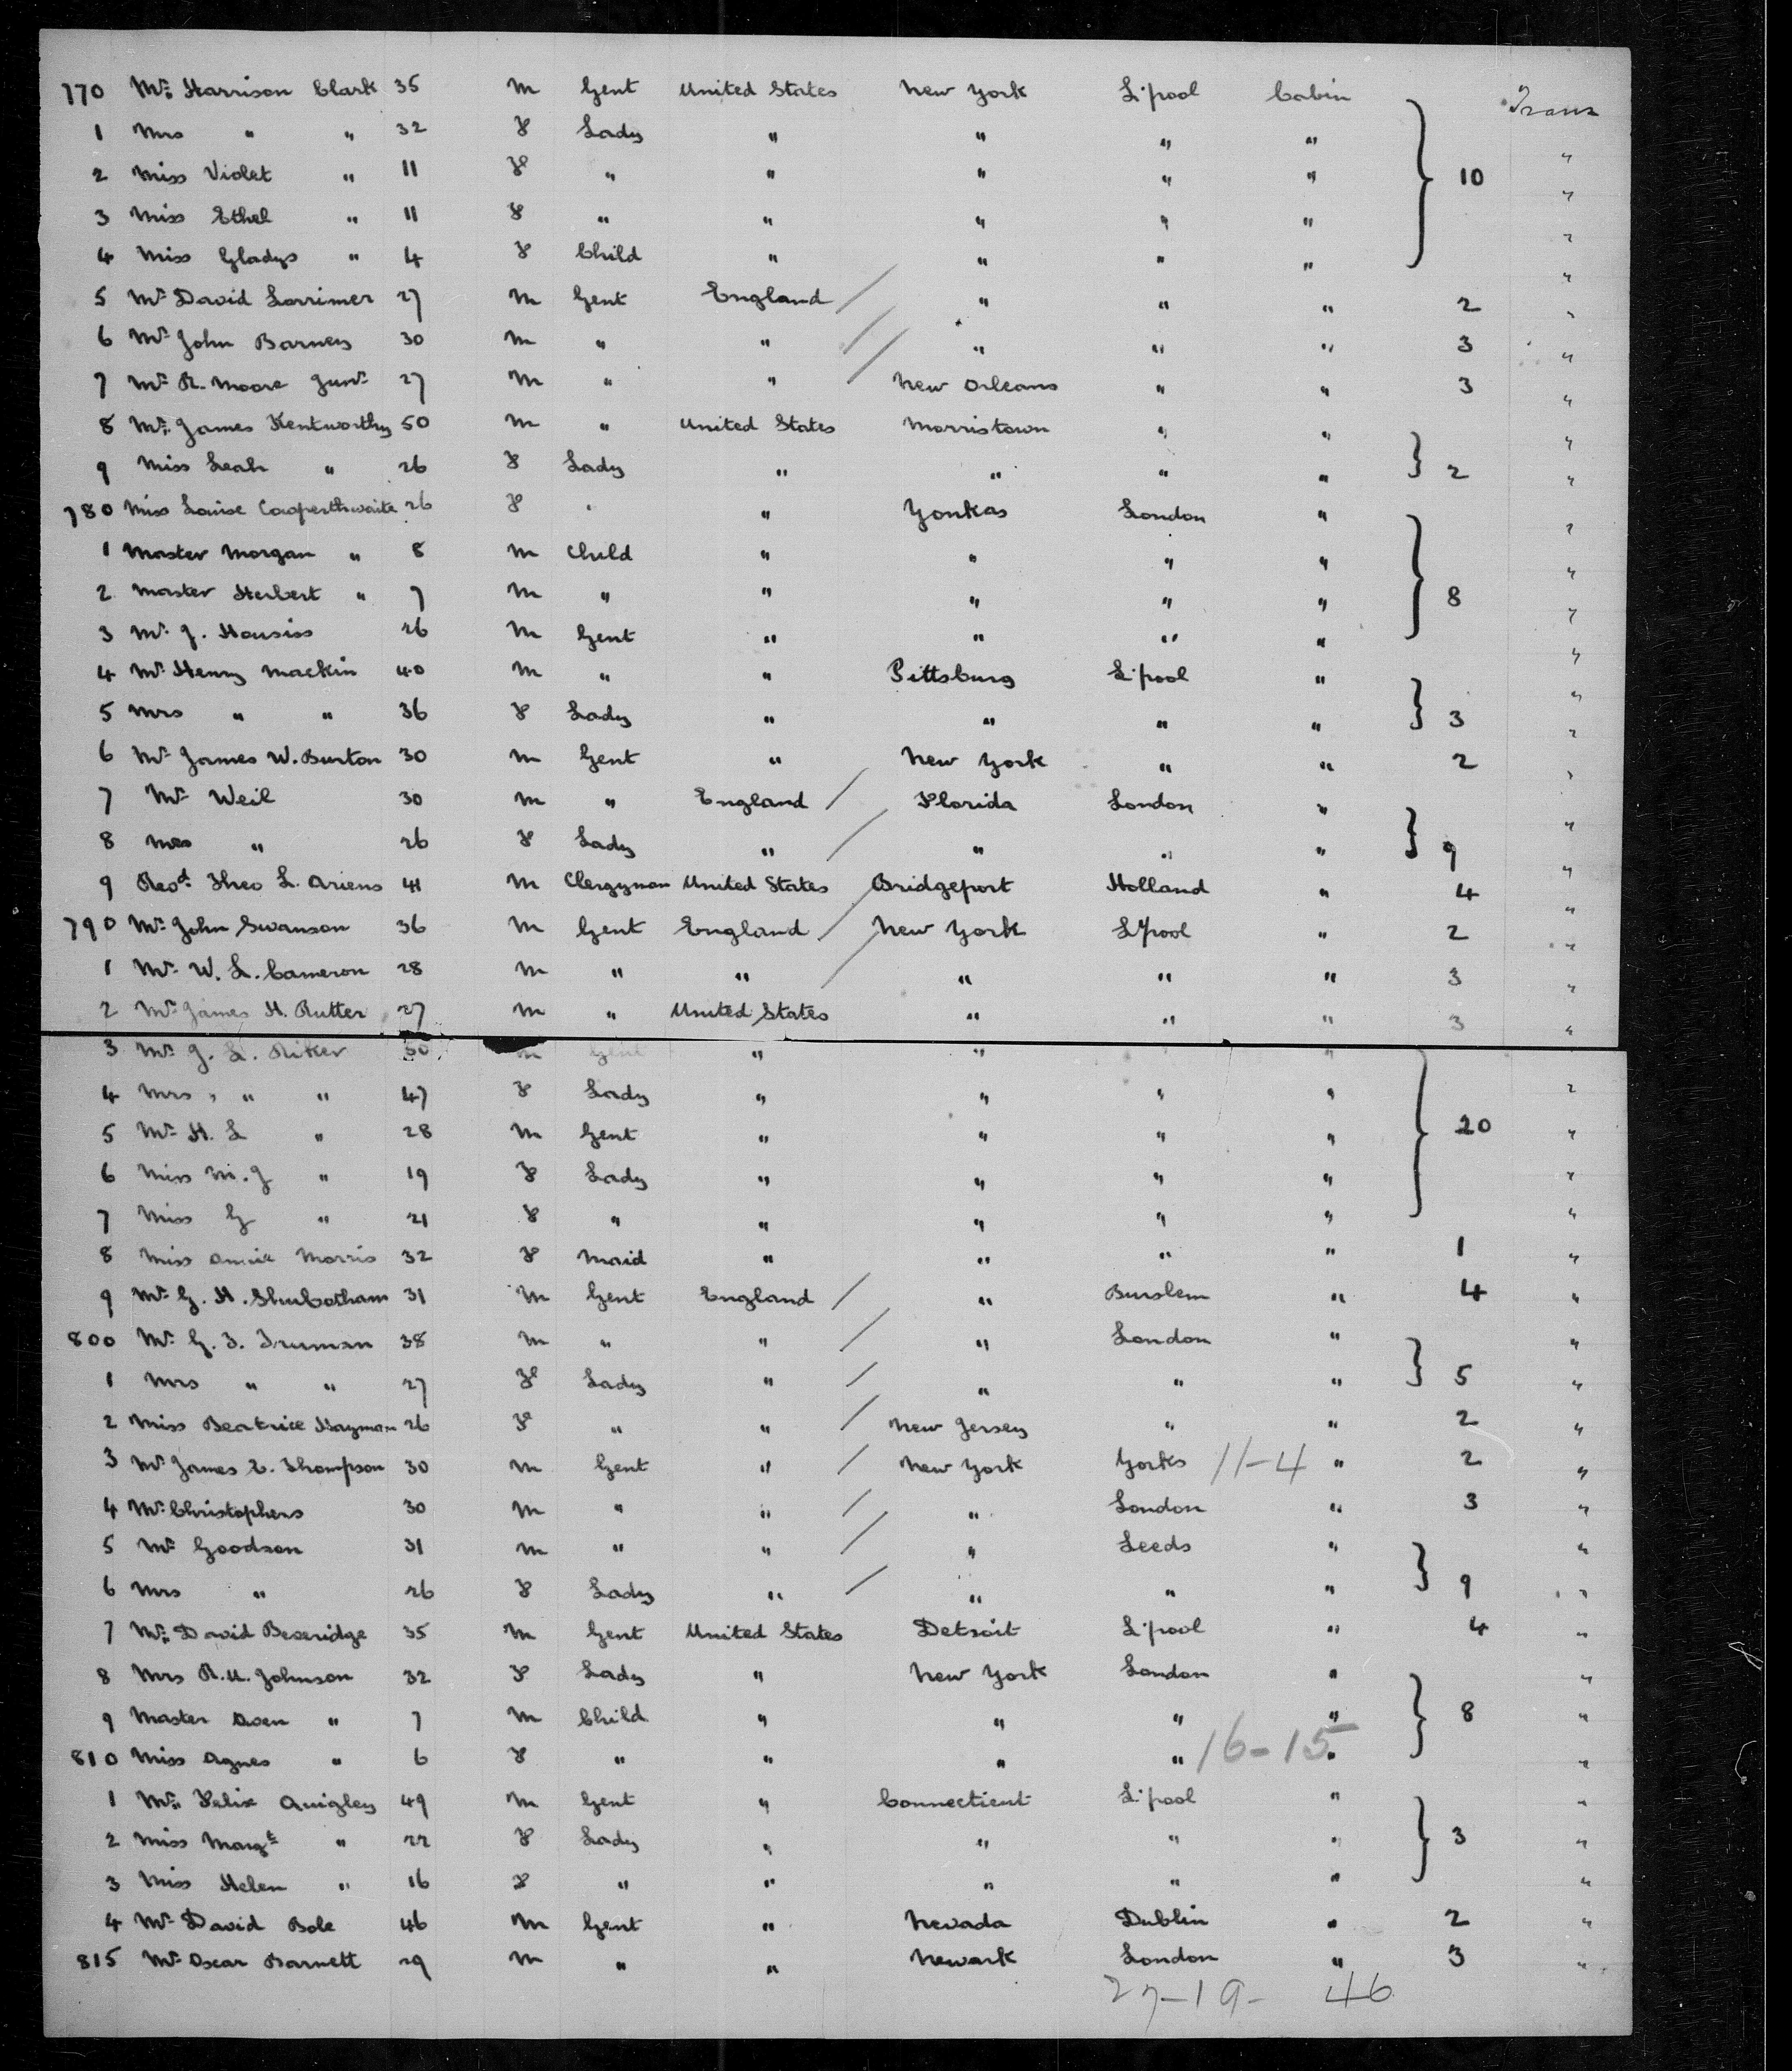 770 Mr. Harrison Clark 35 M Gent United States New York L'pool Cabin Trans
1 Mrs " " 32 F Lady " " " " "
2 Miss Violet " 11 F " " " " " 10 "
3 Miss Ethel " 11 F " " " " " "
4 Miss Gladys " 4 F Child " " " " "
5 Mr David Lorrimer 27 M Gent England / " " " 2 "
6 Mr John Barnes 30 M " " / " " " 3 "
7 Mr R. Moore Junr 27 M " " / New Orleans " " 3 "
8 Mr. James Kentworthy 50 M " United States Morristown " " "
9 Miss Leah " 26 F Lady " " " " 2 "
780 Miss Louise Cowperthwaite 26 F " " Yonkas London " "
1 Master Morgan " 8 M Child " " " " "
2 Master Herbert " 7 M " " " " " 8 "
3 Mr J. Housiss 26 M Gent " " " " "
4 Mr Henry Mackin 40 M " " Pittsburg L'pool " "
5 Mrs " " 36 F Lady " " " " 3 "
6 Mr James W. Burton 30 M Gent " New York " " 2 "
7 Mr Weil 30 M " England / Florida London " "
8 Mrs " 26 F Lady " / " " " 9 "
9 Revd. Theo L. Ariens 41 M Clergyman United States Bridgeport Holland " 4 "
790 Mr John Swanson 36 M Gent England / New York L'pool " 2 "
1 Mr W. L. Cameron 28 M " " / " " " 3 "
2 Mr James H. Rutter 27 M " United States " " " 3 "
3 Mr J. L. Riker 50 M Gent " " "
4 Mrs " " " 47 F Lady " " " " "
5 Mr H. L " 28 M Gent " " " " 20 "
6 Miss M. J " 19 F Lady " " " " "
7 Miss G " 21 F " " " " " "
8 Miss Annie Morris 32 F Maid " " " " 1 "
9 Mr G. H. Shubotham 31 M Gent England / " Burslem " 4 "
800 Mr G. F. Truman 38 M " " / " London " "
1 Mrs " " 27 F Lady " / " " " 5 "
2 Miss Beatrice Hayman 26 F " " / New Jersey " " 2 "
3 Mr James E. Thompson 30 M Gent " / New York Yorks 11-4 " 2 "
4 Mr Christophers 30 M " " / " London " 3 "
5 Mr Goodson 31 M " " / " Leeds " "
6 Mrs " 26 F Lady " / " " " 9 "
7 Mr. David Beseridge 35 M Gent United States Detroit L'pool " 4 "
8 Mrs R. U. Johnson 32 F Lady " New York London " "
9 Master Owen " 7 M Child " " " " 8 "
810 Miss Agnes " 6 F " " " " 16-15 " "
1 Mr. Felix Quigley 49 M Gent " Connecticut L'pool " "
2 Miss Margt " 22 F Lady " " " " 3 "
3 Miss Helen " 16 F " " " " " "
4 Mr David Bole 46 M Gent " Nevada Dublin " 2 "
815 Mr Oscar Barnett 29 M " " Newark London " 3 "
27-19- 46